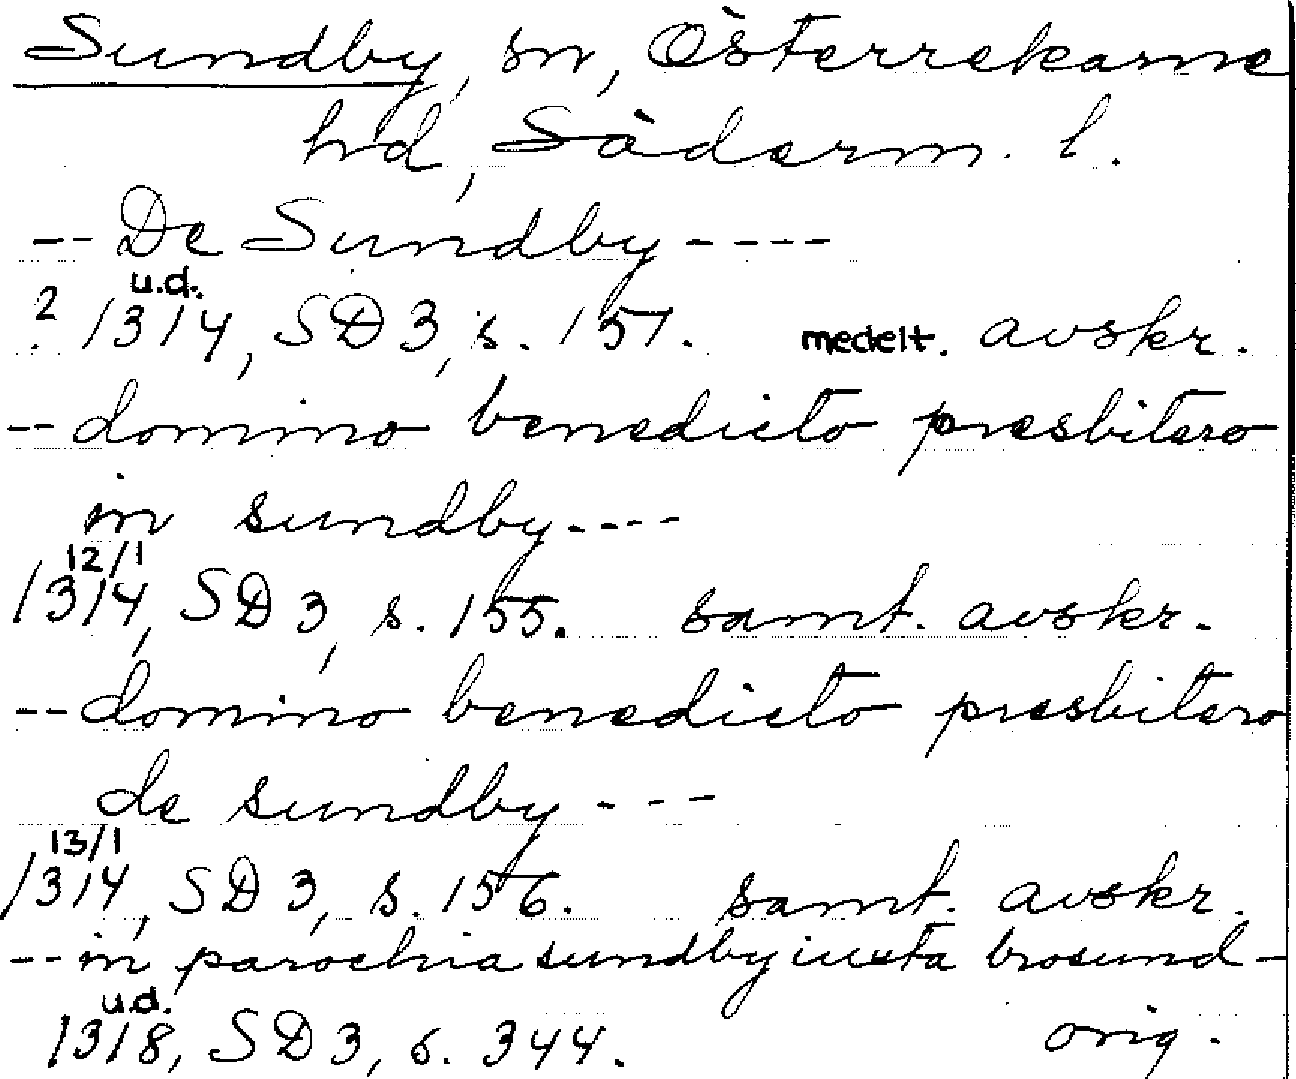 Sundby, sn, Österrekarne
hd, Söderm. l.
-- De Sundby ----
u.d.
? 1314, SD 3, s. 157. medelt. avskr.
-- domino benedicto presbitero
in sundby ----
12/1
1314, SD 3, s. 155. samt. avskr.
-- domino benedicto presbitero
de sundby ---
13/1
1314, SD 3, s. 156. samt. avskr.
-- in parochia sundby iuxta brosund -
u.d.
1318, SD 3, s. 344. orig.